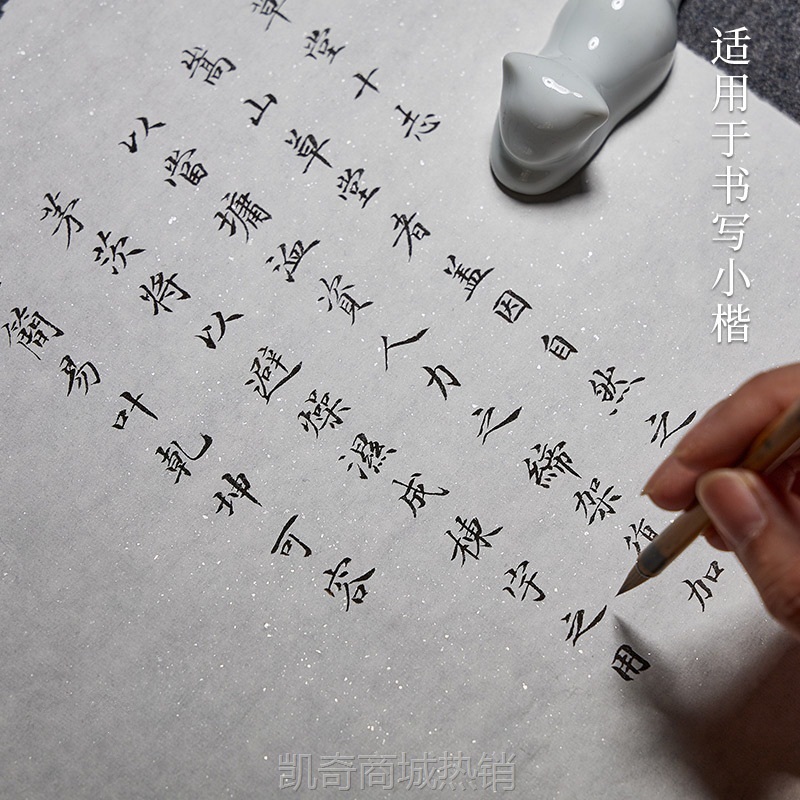 适用于书写小楷
草堂十志
嵩山草堂者盖因自然之
以當墉洫資人力之締架加
茅茨將以避燥濕成棟宇之用
簡易叶乾坤可容
凯奇商城热销